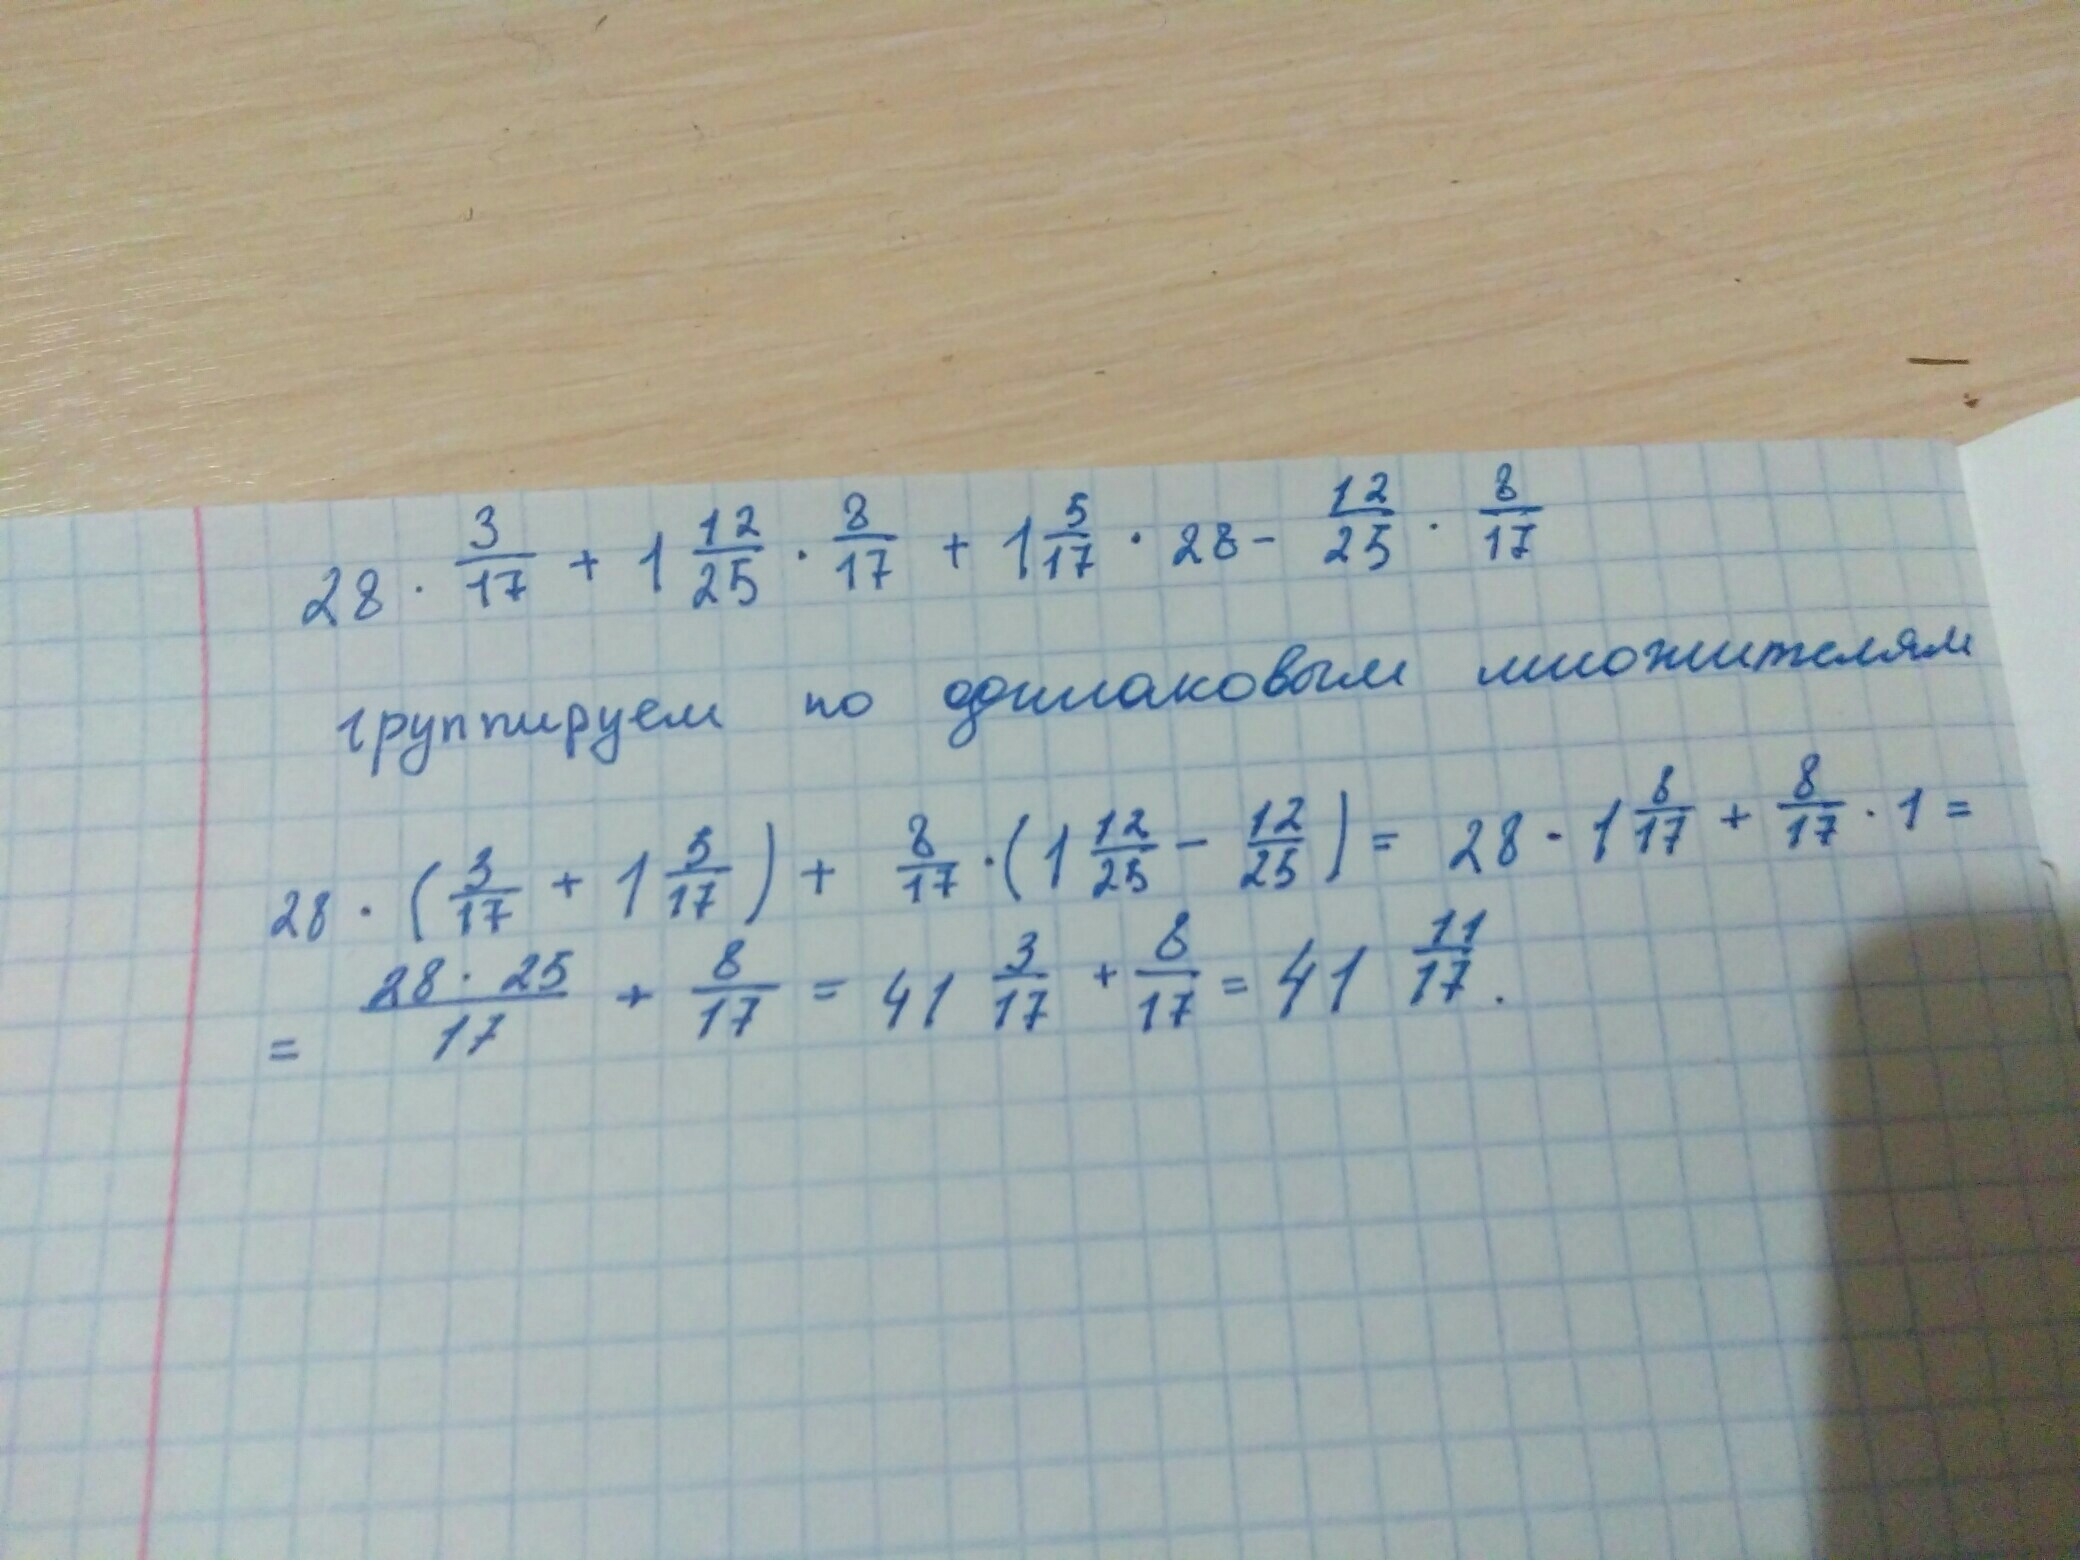 28 · 3/17 + 1 12/25 · 8/17 + 1 5/17 · 28 - 12/25 · 8/17
группируем по одинаковым множителям
28 · (3/17 + 1 5/17) + 8/17 · (1 12/25 - 12/25) = 28 · 1 8/17 + 8/17 · 1 =
= 28 · 25/17 + 8/17 = 41 3/17 + 8/17 = 41 11/17.